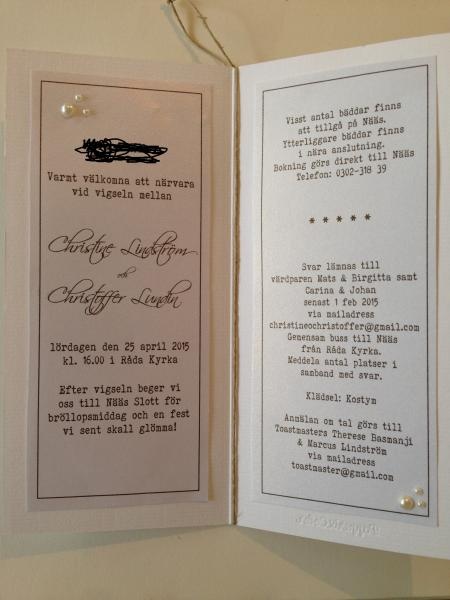 Varmt välkomna att närvara
vid vigseln mellan
Christine Lindström
och
Christoffer Lundin
lördagen den 25 april 2015
kl. 16.00 i Råda Kyrka
Efter vigseln beger vi
oss till Nääs Slott för
bröllopsmiddag och en fest
vi sent skall glömma!
Visst antal bäddar finns
att tillgå på Nääs.
Ytterliggare bäddar finns
i nära anslutning.
Bokning görs direkt till Nääs
Telefon: 0302-318 39
* * * * *
Svar lämnas till
värdparen Mats & Birgitta samt
Carina & Johan
senast 1 feb 2015
via mailadress
christineochristoffer@gmail.com
Gemensam buss till Nääs
från Råda Kyrka.
Meddela antal platser i
samband med svar.
Klädsel: Kostym
Anmälan om tal görs till
Toastmasters Therese Basmanji
& Marcus Lindström
via mailadress
toastmaster@gmail.com